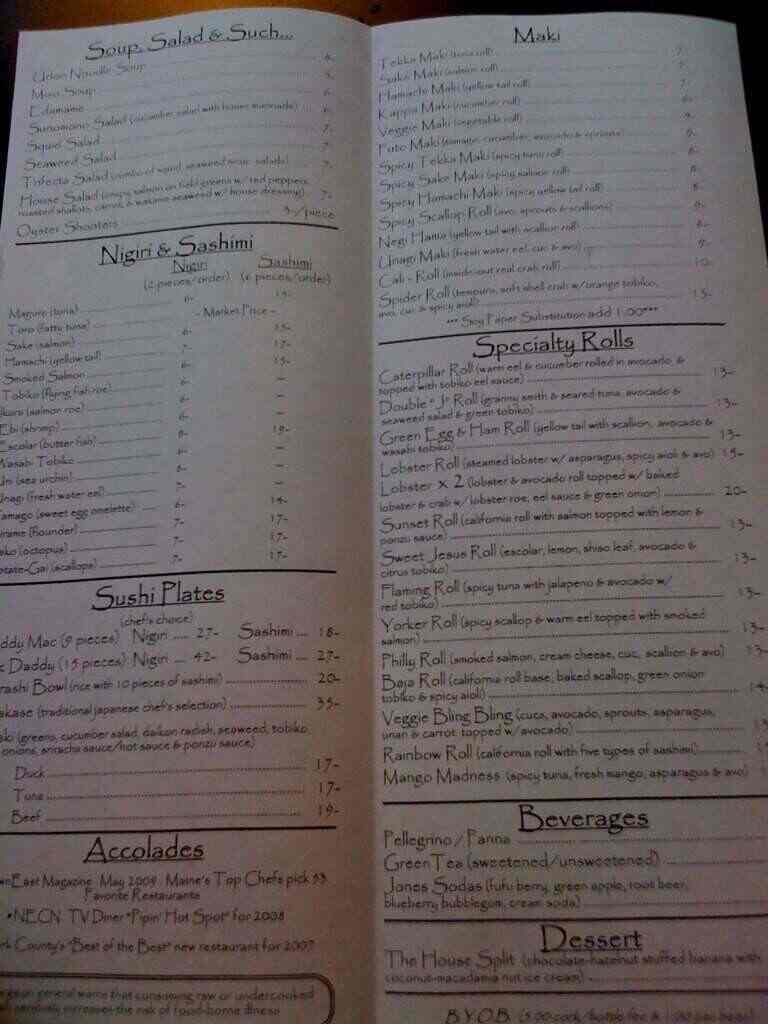 Soup, Salad & Such...
Udon Noodle Soup
Miso Soup
Edamame
Sunomono Salad (cucumber salad with house marinade)
Squid Salad
Seaweed Salad
Trifecta Salad (combo of squid, seaweed & salads)
House Salad (crispy salmon on field greens w/ red peppers,
roasted shallots, carrot, & wakame seaweed w/ house dressing) 7-
Oyster Shooters 3-/piece
Nigiri & Sashimi
Nigiri Sashimi
(2 pieces/order) (6 pieces/order)
Maguro (tuna) 6- 15-
Toro (fatty tuna) - Market Price -
Sake (salmon) 6- 15-
Hamachi (yellow tail) 7- 17-
Smoked Salmon 6- 15-
Tobiko (flying fish roe) 6- -
Ikura (salmon roe) 6- -
Ebi (shrimp) 6- -
Escolar (butter fish)
Wasabi Tobiko
Uni (sea urchin)
Unagi (fresh water eel)
Tamago (sweet egg omelette)
(flounder) 7- 17-
(octopus) 7- 17-
(scallops) 7- 17-
Sushi Plates
(chef's choice)
ddy Mac (9 pieces) Nigiri .... 27- Sashimi ... 18-
c Daddy (15 pieces) Nigiri ... 42- Sashimi ... 27-
rashi Bowl (rice with 10 pieces of sashimi) 20-
akase (traditional japanese chef's selection) 35-
(greens, cucumber salad, daikon radish, seaweed, tobiko,
onions, sriracha sauce/hot sauce & ponzu sauce)
Duck 17-
Tuna 17-
Beef 19-
Accolades
wnEast Magazine May 2009 Maine's Top Chefs pick 53
Favorite Restaurants
•NECN TV Diner "Pipin' Hot Spot" for 2008
rk County's "Best of the Best" new restaurant for 2007
general warns that consuming raw or undercooked
increases the risk of food-borne illness
Maki
Tekka Maki (tuna roll) 7-
Sake Maki (salmon roll) 7-
Hamachi Maki (yellow tail roll) 7-
Kappa Maki (cucumber roll)
Veggie Maki (vegetable roll)
Futo Maki (tamago, cucumber, avocado & sprouts)
Spicy Tekka Maki (spicy tuna roll)
Spicy Sake Maki (spicy salmon roll)
Spicy Hamachi Maki (spicy yellow tail roll)
Spicy Scallop Roll (avo, sprouts & scallions)
Negi Hama (yellow tail with scallion roll)
Unagi Maki (fresh water eel, cuc & avo)
Cali - Roll (inside-out real crab roll) 10-
Spider Roll (tempura, soft shell crab w/orange tobiko,
avo, cuc & spicy aioli) 13-
*** Soy Paper Substitution add 1.00***
Specialty Rolls
Caterpillar Roll (warm eel & cucumber rolled in avocado, &
topped with tobiko eel sauce) 13-
Double "J" Roll (granny smith & seared tuna, avocado &
seaweed salad & green tobiko) 13-
Green Egg & Ham Roll (yellow tail with scallion, avocado &
wasabi tobiko) 13-
Lobster Roll (steamed lobster w/ asparagus, spicy aioli & avo) 15-
Lobster x 2 (lobster & avocado roll topped w/ baked
lobster & crab w/ lobster roe, eel sauce & green onion) 20-
Sunset Roll (california roll with salmon topped with lemon &
ponzu sauce) 13-
Sweet Jesus Roll (escolar, lemon, shiso leaf, avocado &
citrus tobiko) 13-
Flaming Roll (spicy tuna with jalapeno & avocado w/
red tobiko) 13-
Yorker Roll (spicy scallop & warm eel topped with smoked
salmon) 13-
Philly Roll (smoked salmon, cream cheese, cuc, scallion & avo) 13-
Baja Roll (california roll base, baked scallop, green onion
tobiko & spicy aioli) 14-
Veggie Bling Bling (cucs, avocado, sprouts, asparagus,
and carrot topped w/avocado)
Rainbow Roll (california roll with five types of sashimi)
Mango Madness (spicy tuna, fresh mango, asparagus & avo)
Beverages
Pellegrino / Panna
Green Tea (sweetened/unsweetened)
Jones Sodas (fufu berry, green apple, root beer,
blueberry bubblegum, cream soda)
Dessert
The House Split (chocolate-hazelnut stuffed banana with
coconut-macadamia nut ice cream)
B.Y.O.B.